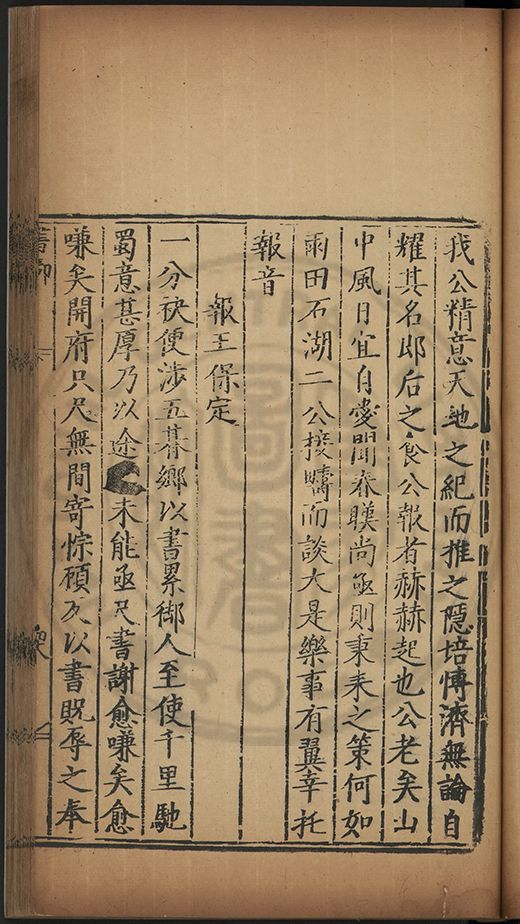 我公精意天地之紀而推之隱培慱濟無論自
耀其名邸后之食公報者赫赫起也公老矣山
中風日宜自愛聞眷睽尚亟則秉耒之策何如
雨田石湖二公接疇而談大是樂事有翼幸托
報音
報王保定
一分袂便涉五朞鄉以書累御人至使千里馳
蜀意甚厚乃以途未能亟尺書謝愈嗛矣愈
嗛矣開府只尺無間寄悰頎以書貺辱之奉